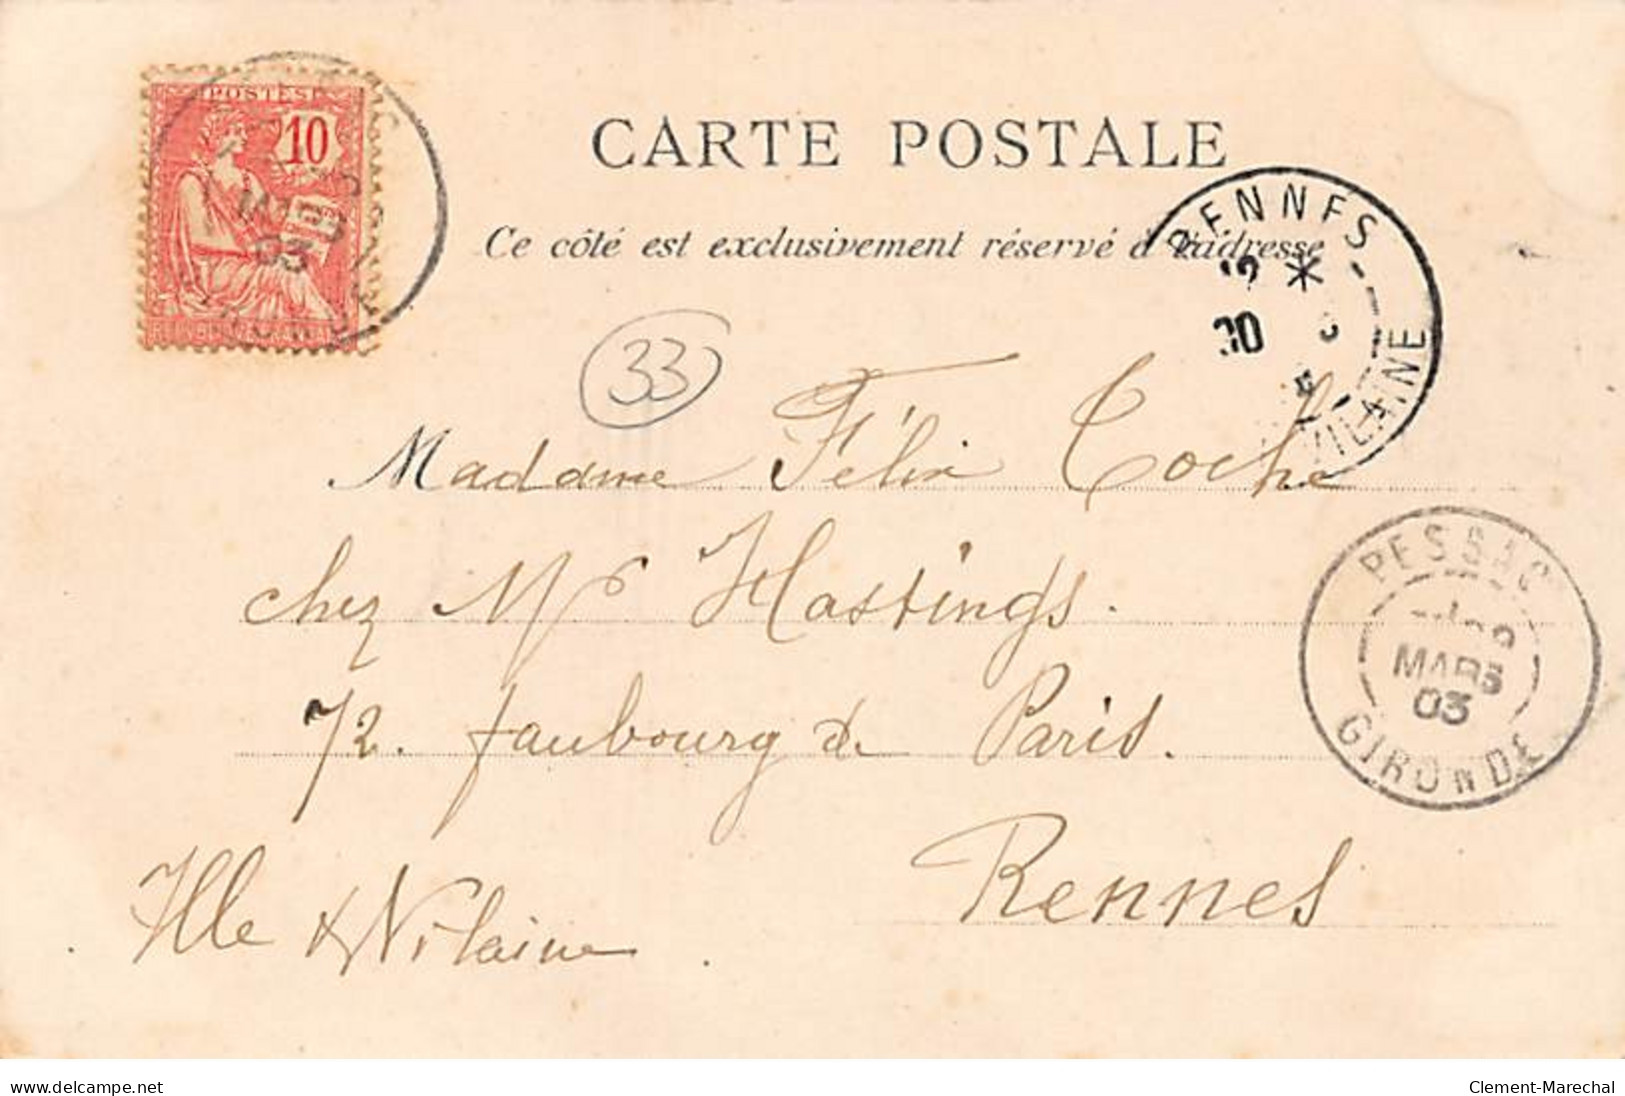 POSTES
10
MARS
03
CARTE POSTALE
Ce côté est exclusivement réservé à l'adresse
RENNES
VILAINE
33
Madame Félix Coche
chez Mr Hastings.
72. faubourg de Paris.
Rennes
Ille & Vilaine.
PESSAC
MARS
03
GIRONDE
www.delcampe.net
Clement-Marechal